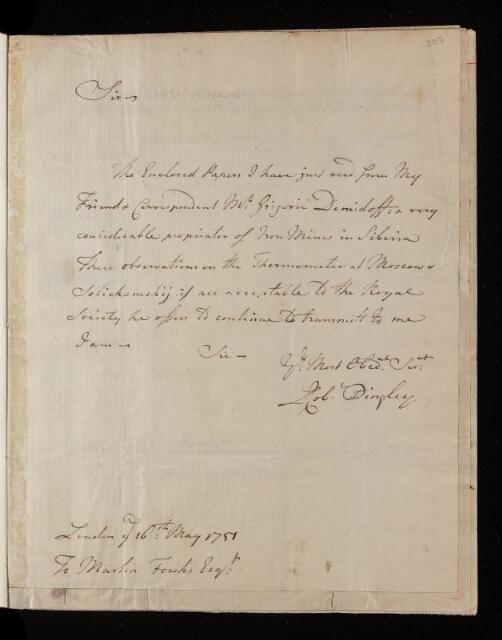 207
Sir
The Enclosed Papers I have just recd from My
Friend & Correspondent Mr. Grigorii Demidoff, a very
considerable propriator of Iron Mines in Siberia
These observations on the Thermometer at Moscow &
Solickamskij if are acceptable to the Royal
Society he offers to continue to transmitt to me
I am
Sir
Yr. Most Obedt. Servt
Robt Dingley
London ye 16th May 1751
To Martin Foulks Esqr.